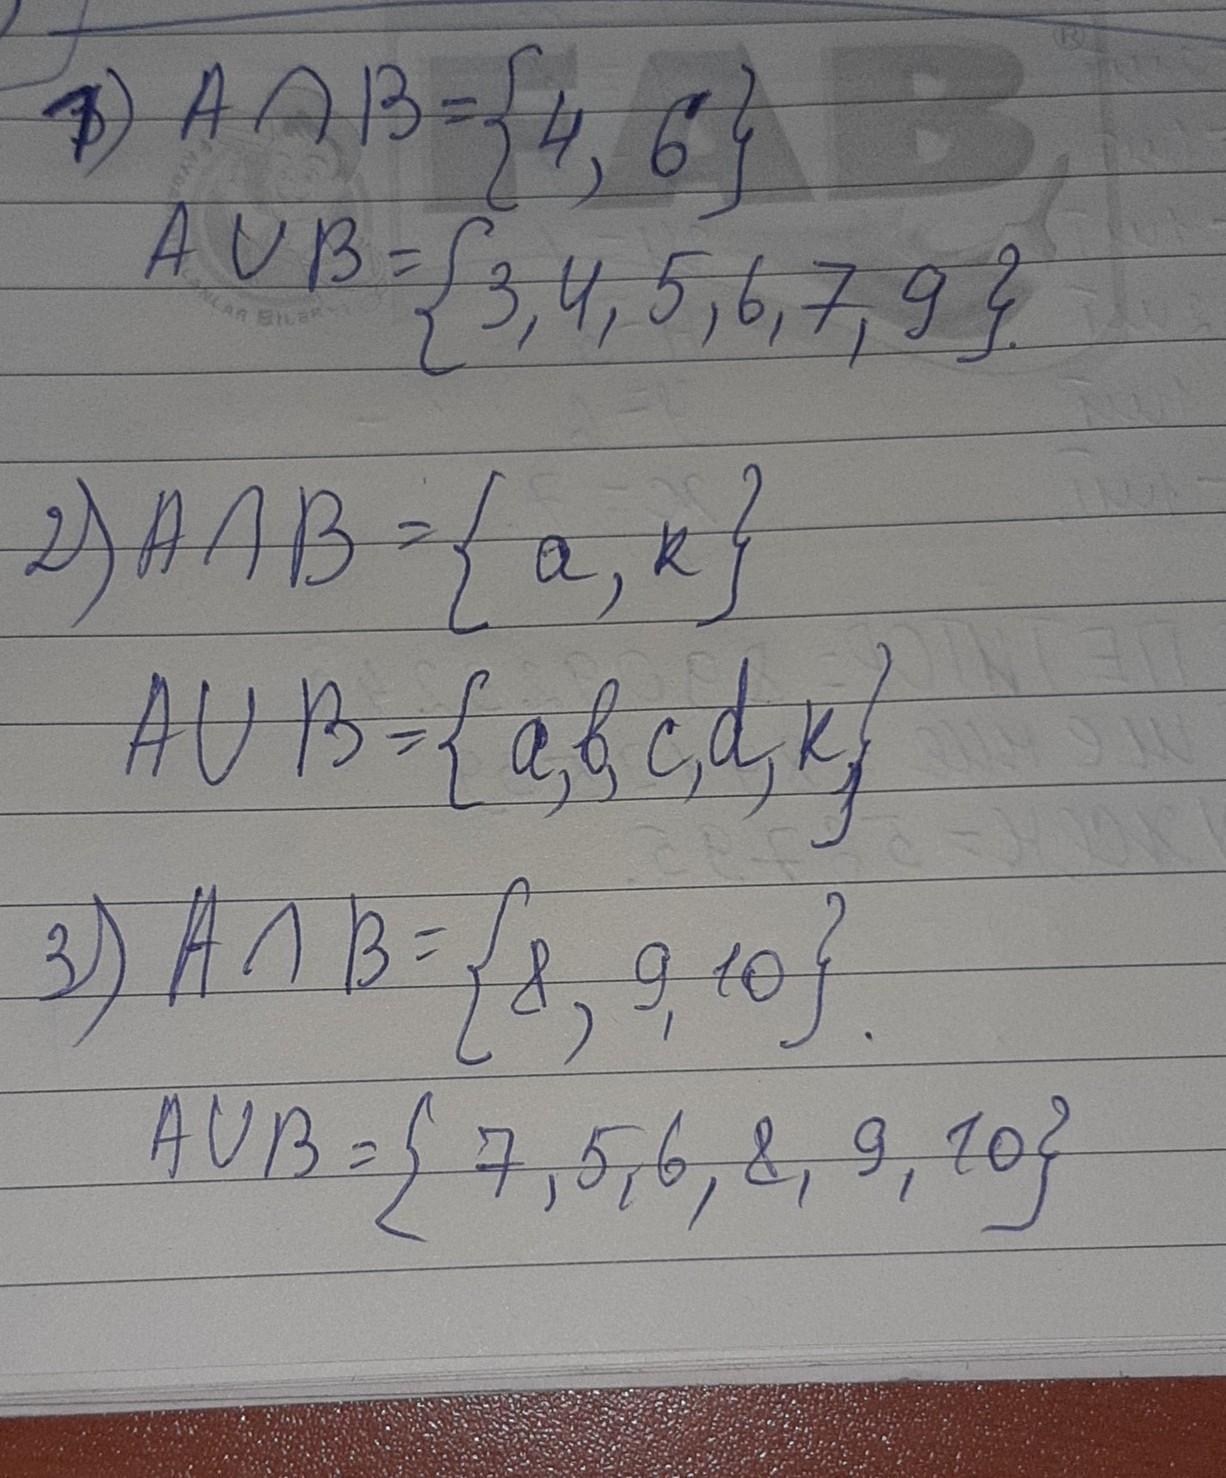 1) A ∩ B = {4, 6}
A ∪ B = {3, 4, 5, 6, 7, 9}.
2) A ∩ B = {a, k}
A ∪ B = {a, b, c, d, k}
3) A ∩ B = {8, 9, 10}.
A ∪ B = {7, 5, 6, 8, 9, 10}
FAB